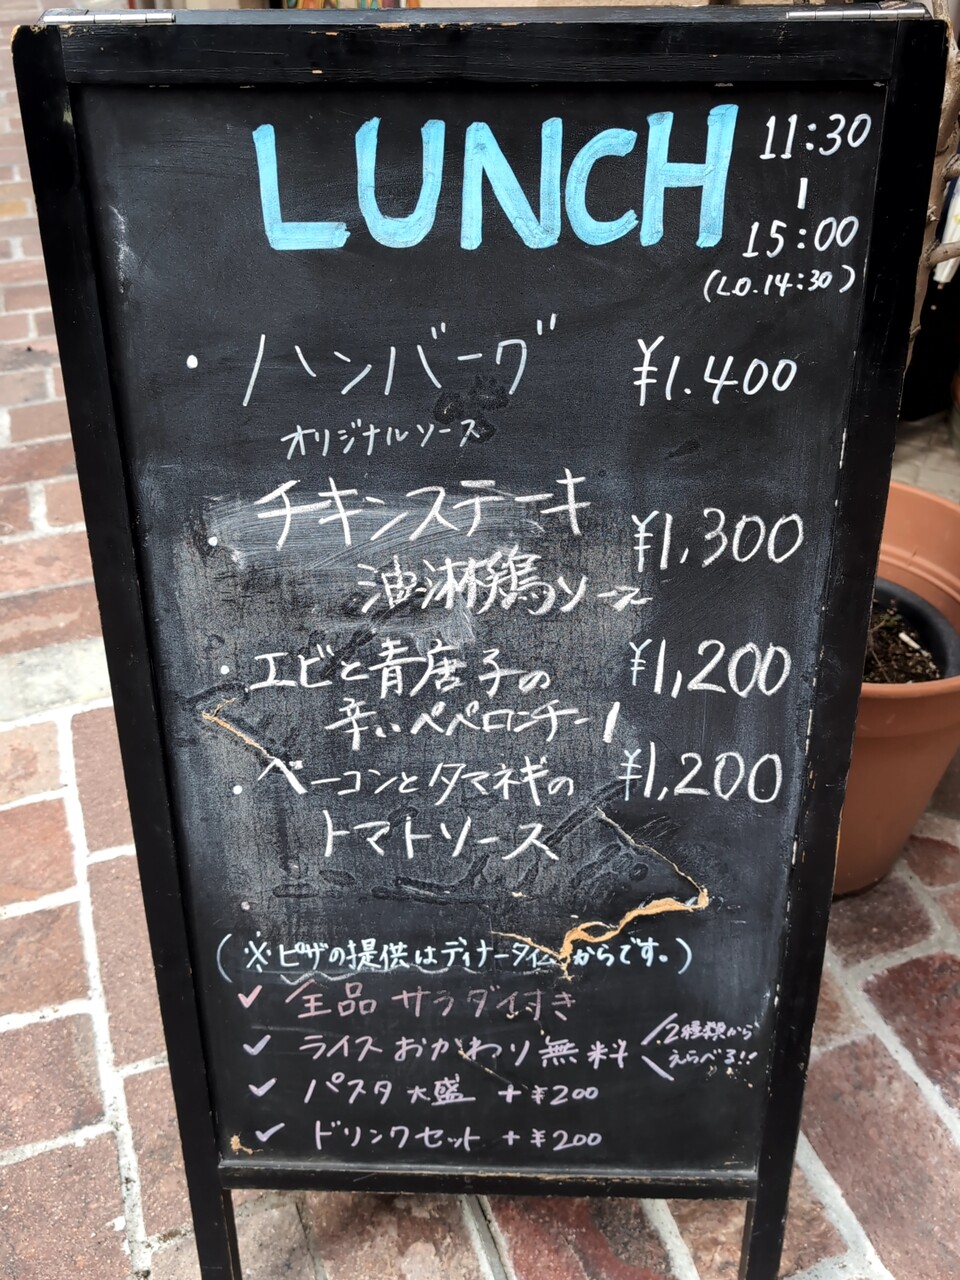 LUNCH
11:30
|
15:00
(L.O.14:30)
・ハンバーグ ¥1.400
オリジナルソース
・チキンステーキ ¥1,300
油淋鶏ソース
・エビと青唐子の ¥1,200
辛いペペロンチーノ
・ベーコンとタマネギの ¥1,200
トマトソース
(※ピザの提供はディナータイムからです。)
✓全品サラダ付き
✓ライスおかわり無料 2種類から
えらべる!!
✓パスタ大盛 +¥200
✓ドリンクセット +¥200